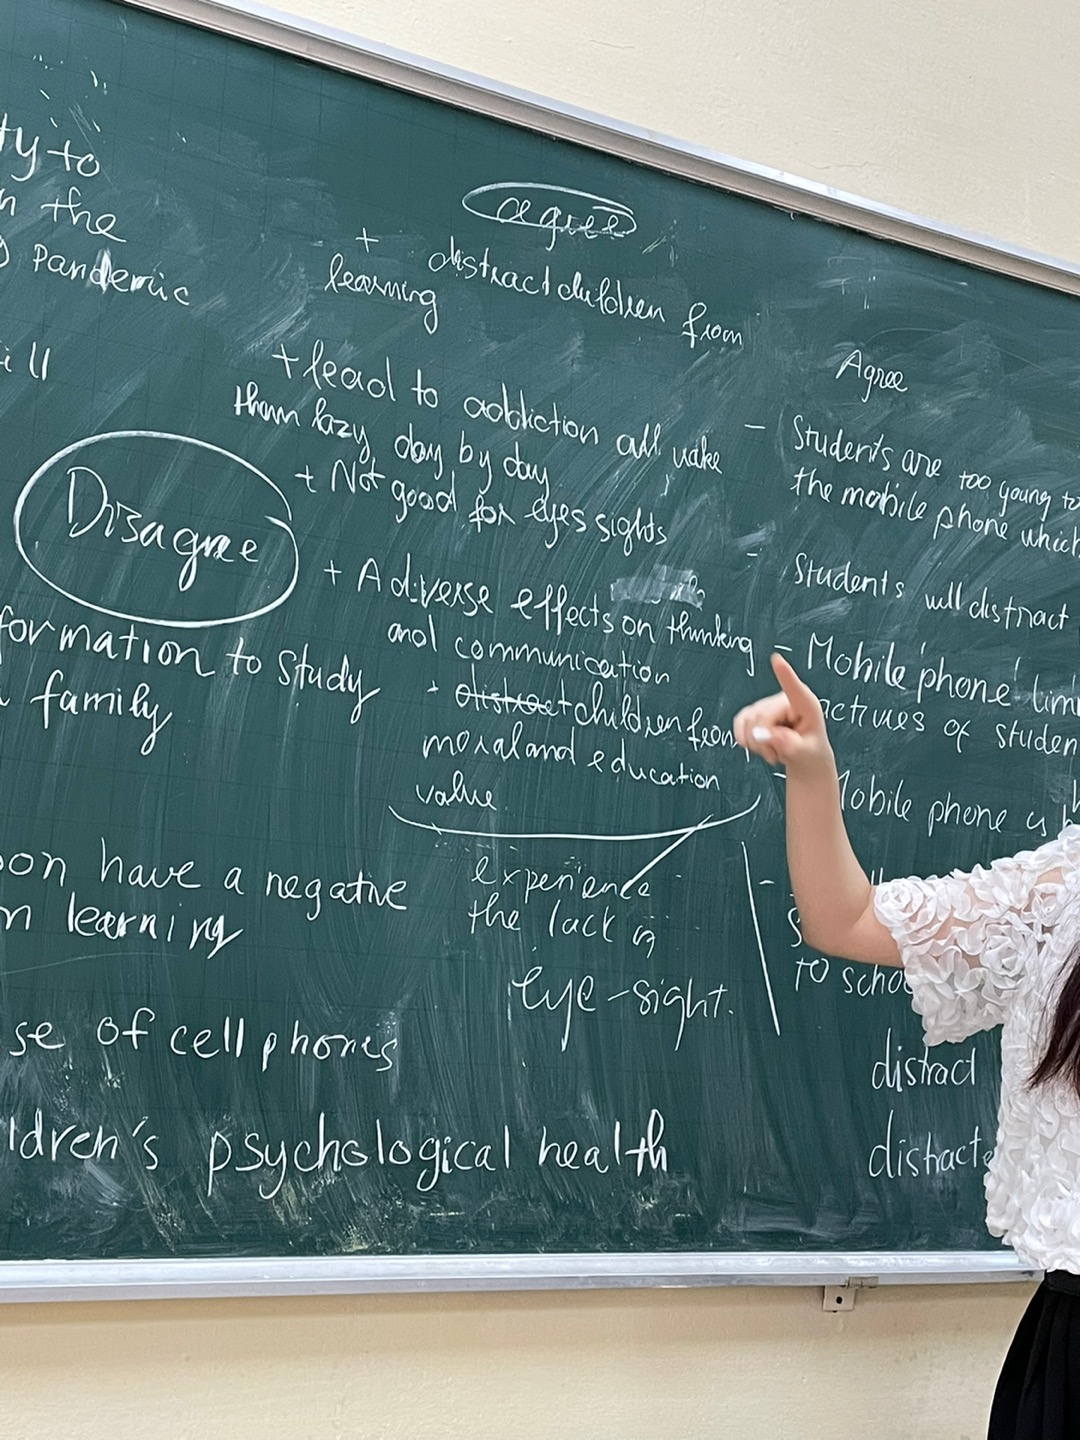 ty to
the
pandemic
ill
Disagree
formation to study
family
have a negative
learning
se of cell phones
ldren's psychological health
agree
+ distract children from
learning
+ lead to addiction all make
them lazy day by day
+ Not good for eyes sights
+ Adverse effects on thinking
and communication
children from
moral and education
value
experience
the lack of
eye-sight.
Agree
- Students are too young to
the mobile phone which
- Students will distract
- Mobile phone lim
of studen
Mobile phone is
to scho
distract
distracte